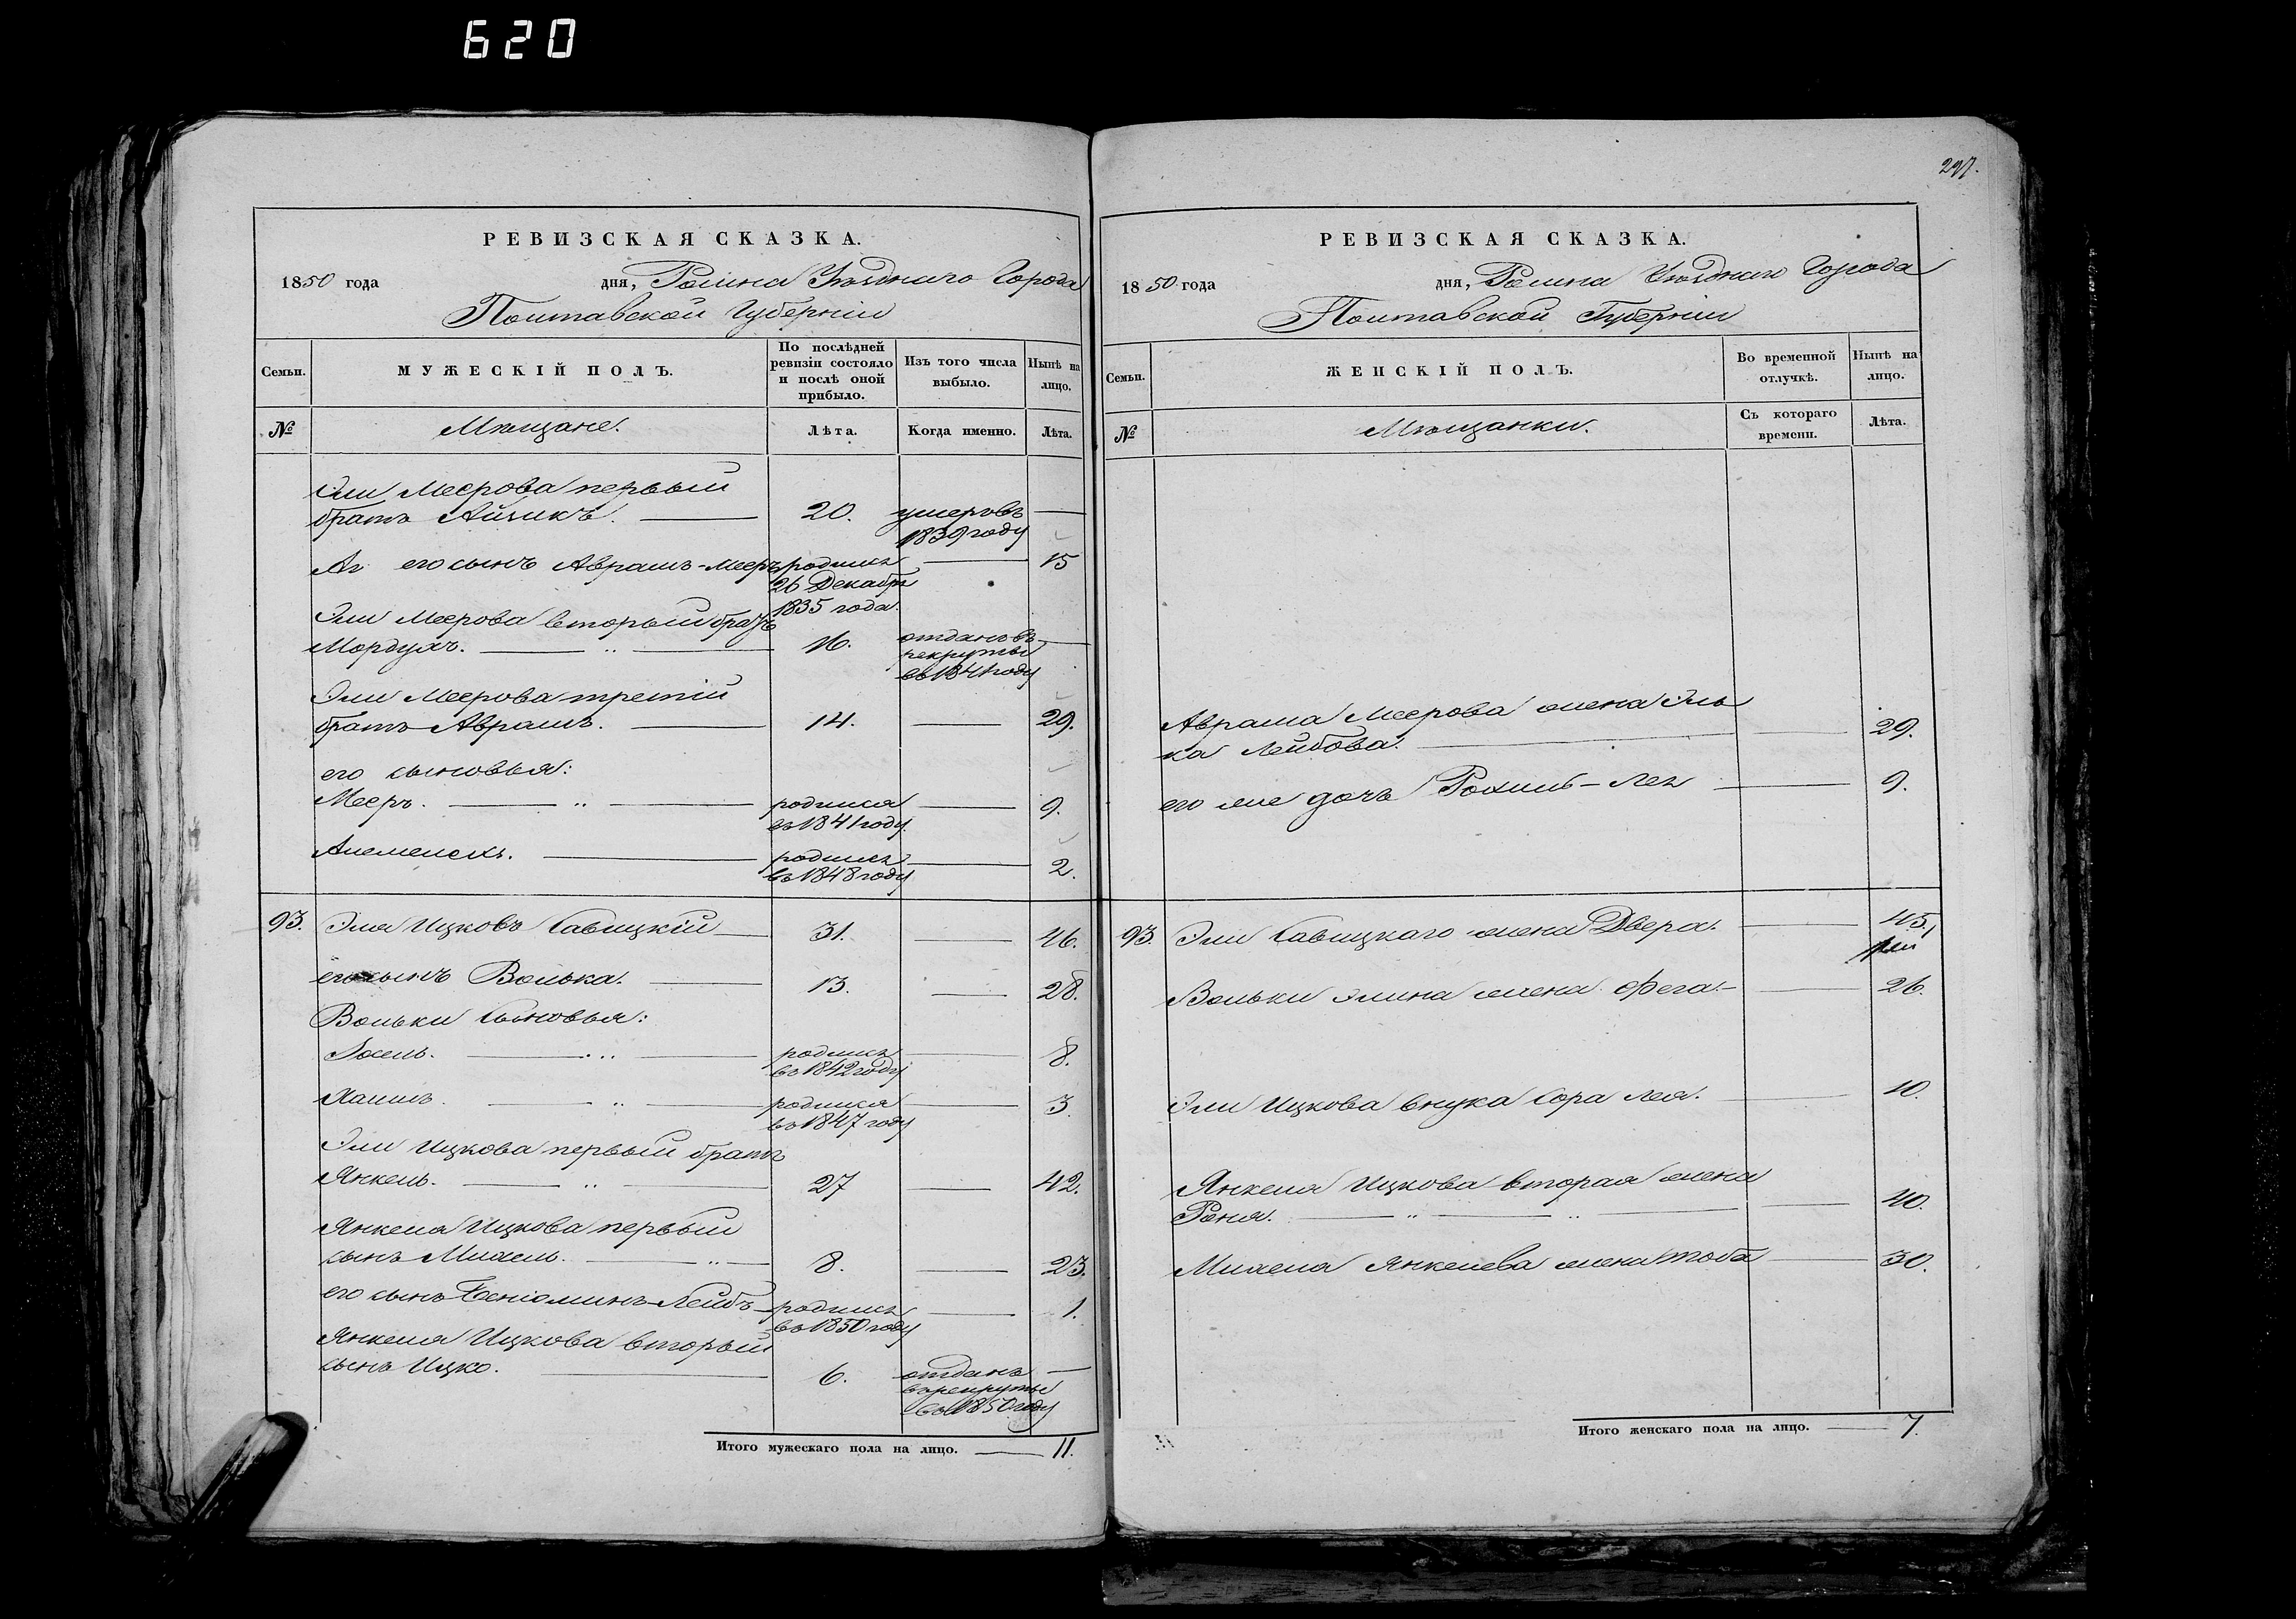 620
РЕВИЗСКАЯ СКАЗКА.
1850 года дня, Ромна Уѣзднаго Города
Полтавской Губерніи
Семьи.
МУЖЕСКІЙ ПОЛЪ.
По послѣдней ревизіи состояло и послѣ оной прибыло.
Изъ того числа выбыло.
Нынѣ на лицо.
№
Мѣщане.
Лѣта.
Когда именно.
Лѣта.
Эли Меерова первый
братъ Айзикъ. — 20. умеръ въ —
1839 году
Аг его сынъ Абрамъ-Мееръ родился — 15
26 Декабря
1835 года.
Эли Меерова вторый братъ
Мордухъ. — " — 16. отданъ въ —
рекруты
въ 1841 году
Эли Меерова третій
братъ Абрамъ. — 14. — 29.
его сыновья:
Мееръ. — " — родился — 9.
въ 1841 году
родился — 2.
въ 1848 году
93. Эля Ицковъ Савицкій — 31. — 46.
его сынъ Волька. — 13. — 28.
Вольки Сыновья:
Іосель. — " — родился — 8.
въ 1842 году
Хаимъ. — " — родился — 3.
въ 1847 году
Эли Ицкова первый братъ
Янкель. — " — 27 — 42.
Янкеля Ицкова первый
сынъ Михель. — " — 8. — 23.
его сынъ Беніоминъ-Лейбъ — родился — 1.
въ 1850 году
Янкеля Ицкова вторый
сынъ Ицко. — 6. отданъ —
въ рекруты
въ 1850 году
Итого мужескаго пола на лицо. — 11.
297.
РЕВИЗСКАЯ СКАЗКА.
1850 года дня, Ромна Уѣзднаго Города
Полтавской Губерніи
Семьи.
ЖЕНСКІЙ ПОЛЪ.
Во временной отлучкѣ.
Нынѣ на лицо.
№
Мѣщанки.
Съ котораго времени.
Лѣта.
Абрама Меерова жена Эль
ка Лейбова. — 29.
его же дочь Рохиль-Лея — 9.
93. Эли Савицкаго жена Двера. — 45.
Вольки Элина жена Фега. — 26.
Эли Ицкова внука Сора Лея. — 10.
Янкеля Ицкова вторая жена
Реня. — " — " — 40.
Михеля Янкелева жена Тоба — 30.
Итого женскаго пола на лицо. — 7.